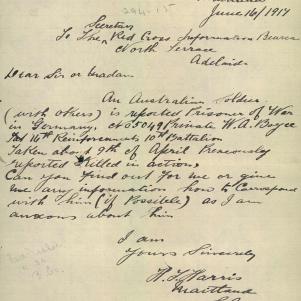 June 16/1917
Secretary
To The Red Cross Information Bearea
North Terrace
Adelaide
Dear Sir or Madam
An Australian Soldier
(with others) is reported Prisoner of War
in Germany, No 5049 Private W. A. Boyce
16th Reinforcements 10th Battalion
Taken about 9th of April Previously
reported Killed in action,
Can you find out for me or give
me any information how to Correspond
with him (if Possible) as I am
anxious about him
I am
Yours Sincerely
Harris
Maitland